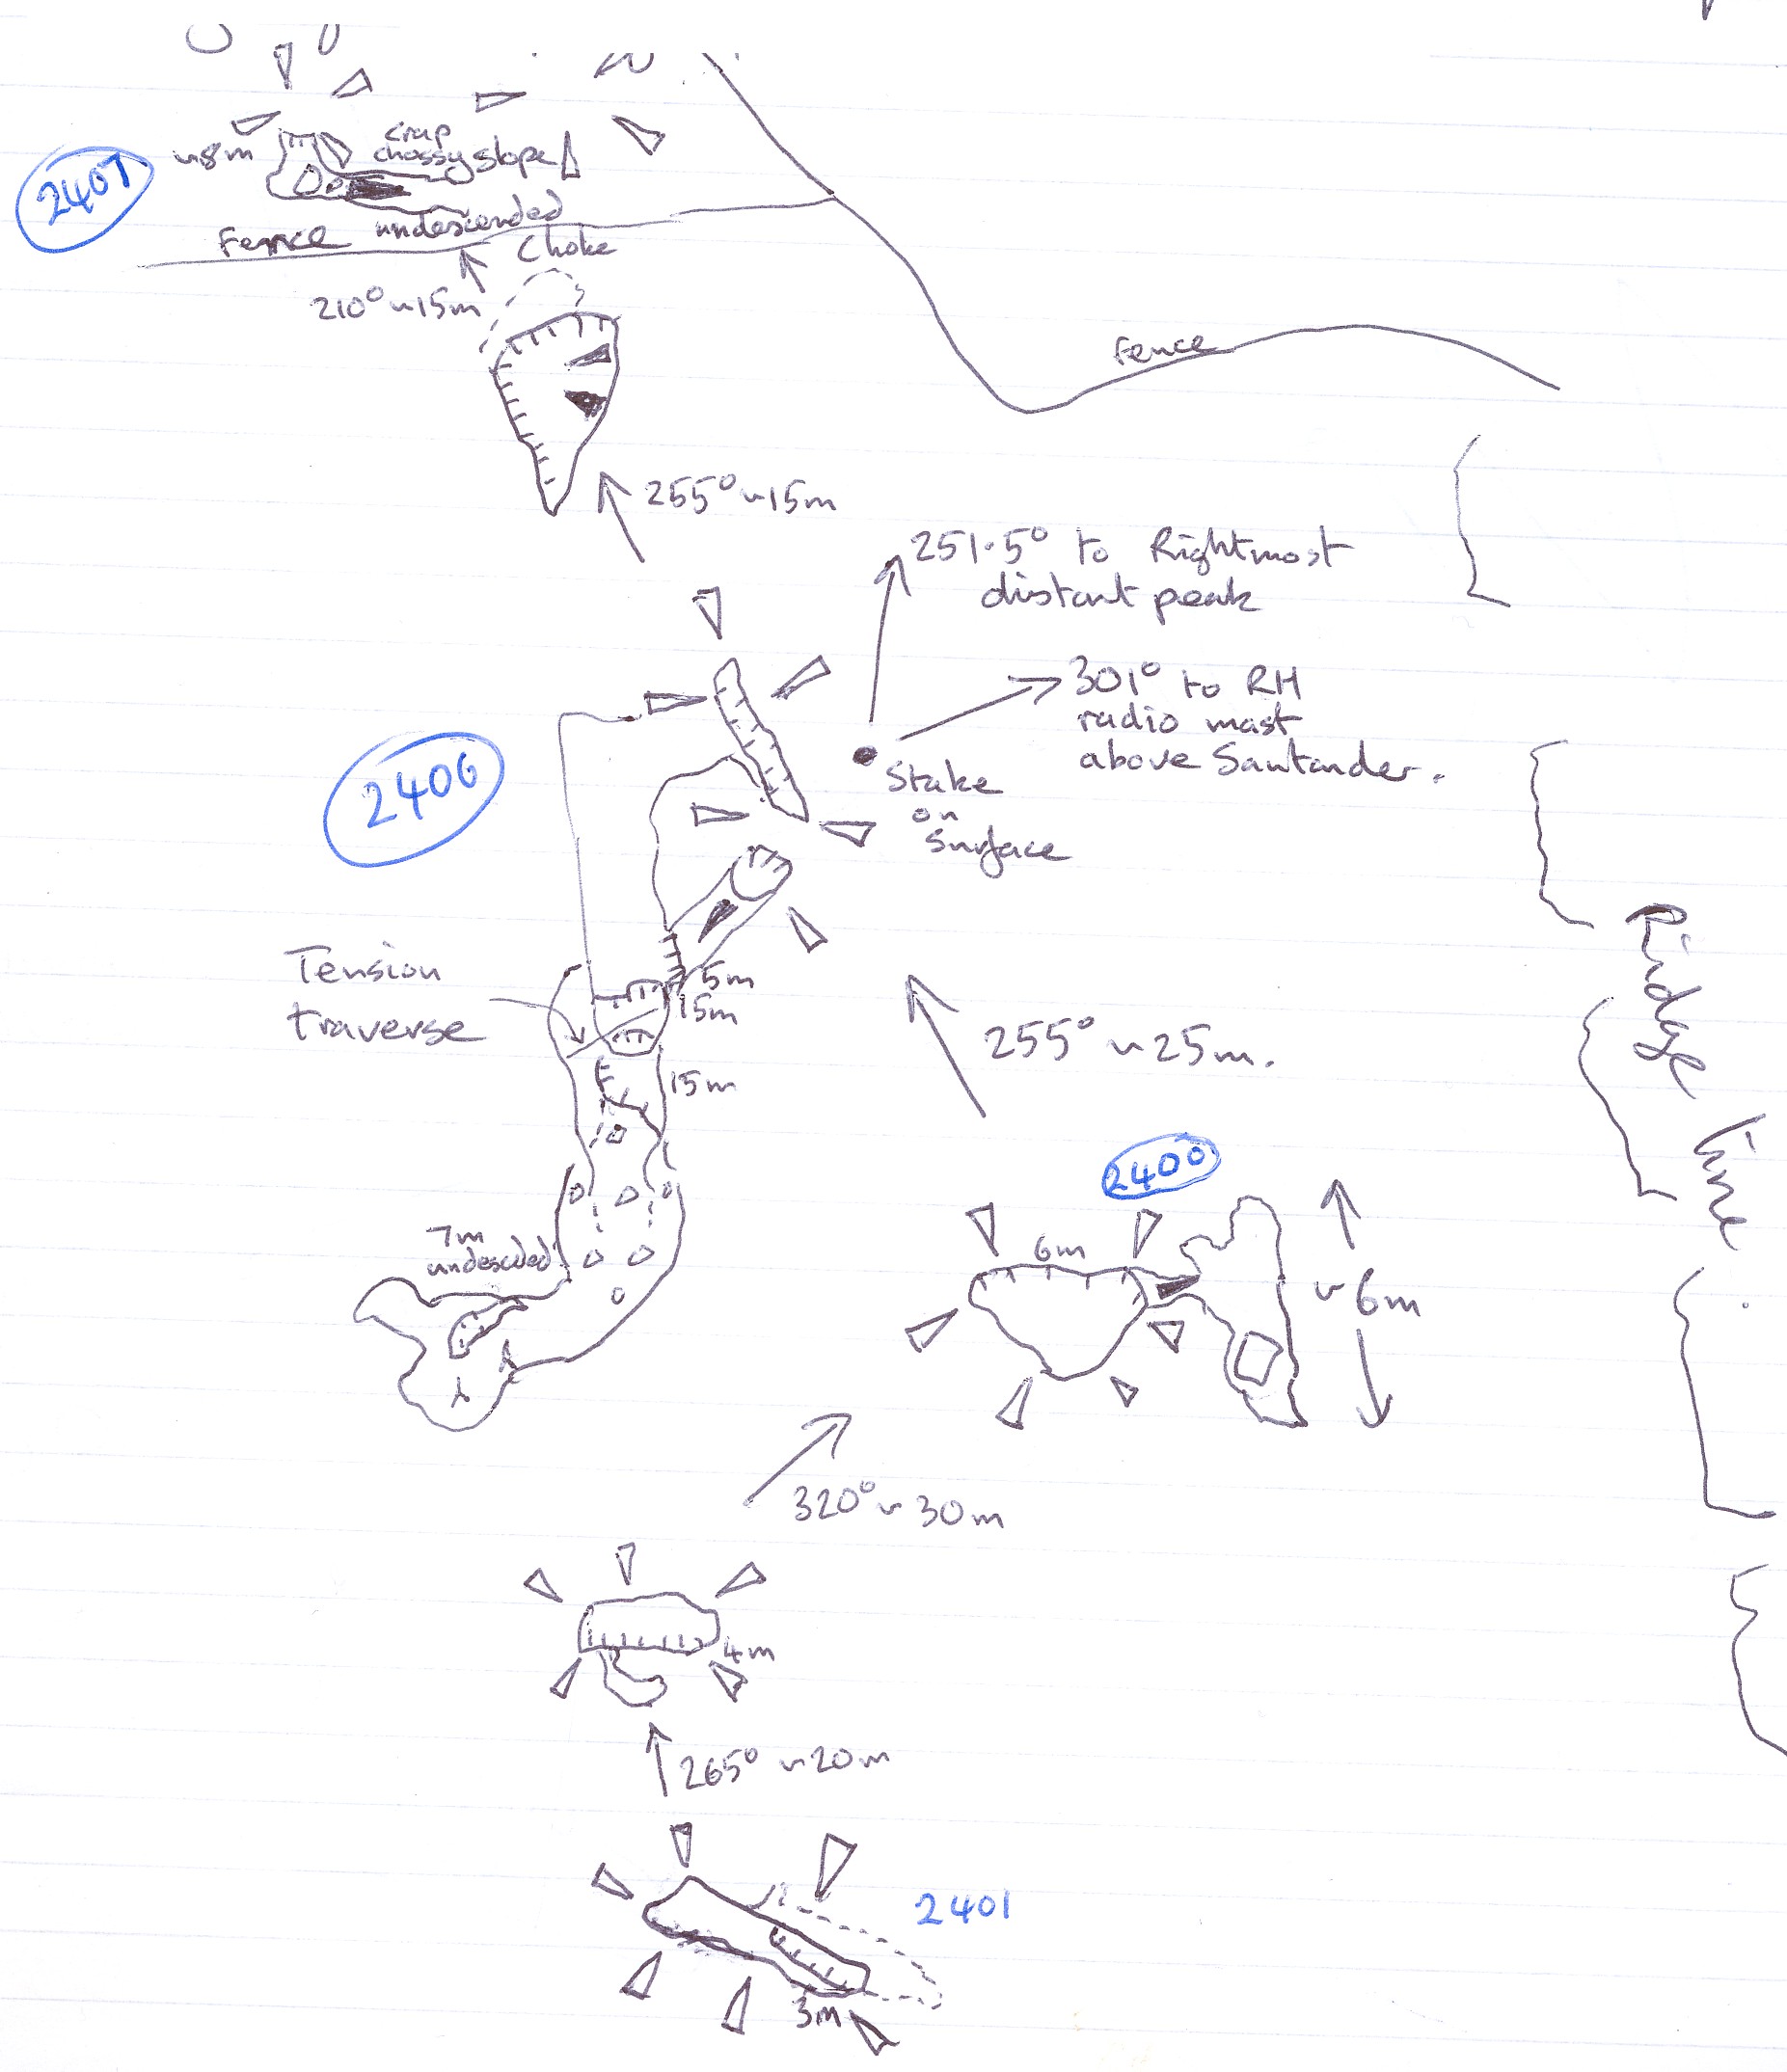 crap
chossy slope
~8m
2407
undescended
Fence
Choke
210° ~15m
Fence
255° ~15m
251.5° to Rightmost
distant peak
301° to RH
radio mast
above Santander.
Stake
on
Surface
2406
Tension
traverse
5m
15m
15m
255° ~ 25m.
Ridge line
2400
7m
undescded
6m
~ 6m
320° ~ 30m
4m
265° ~20m
2401
3m